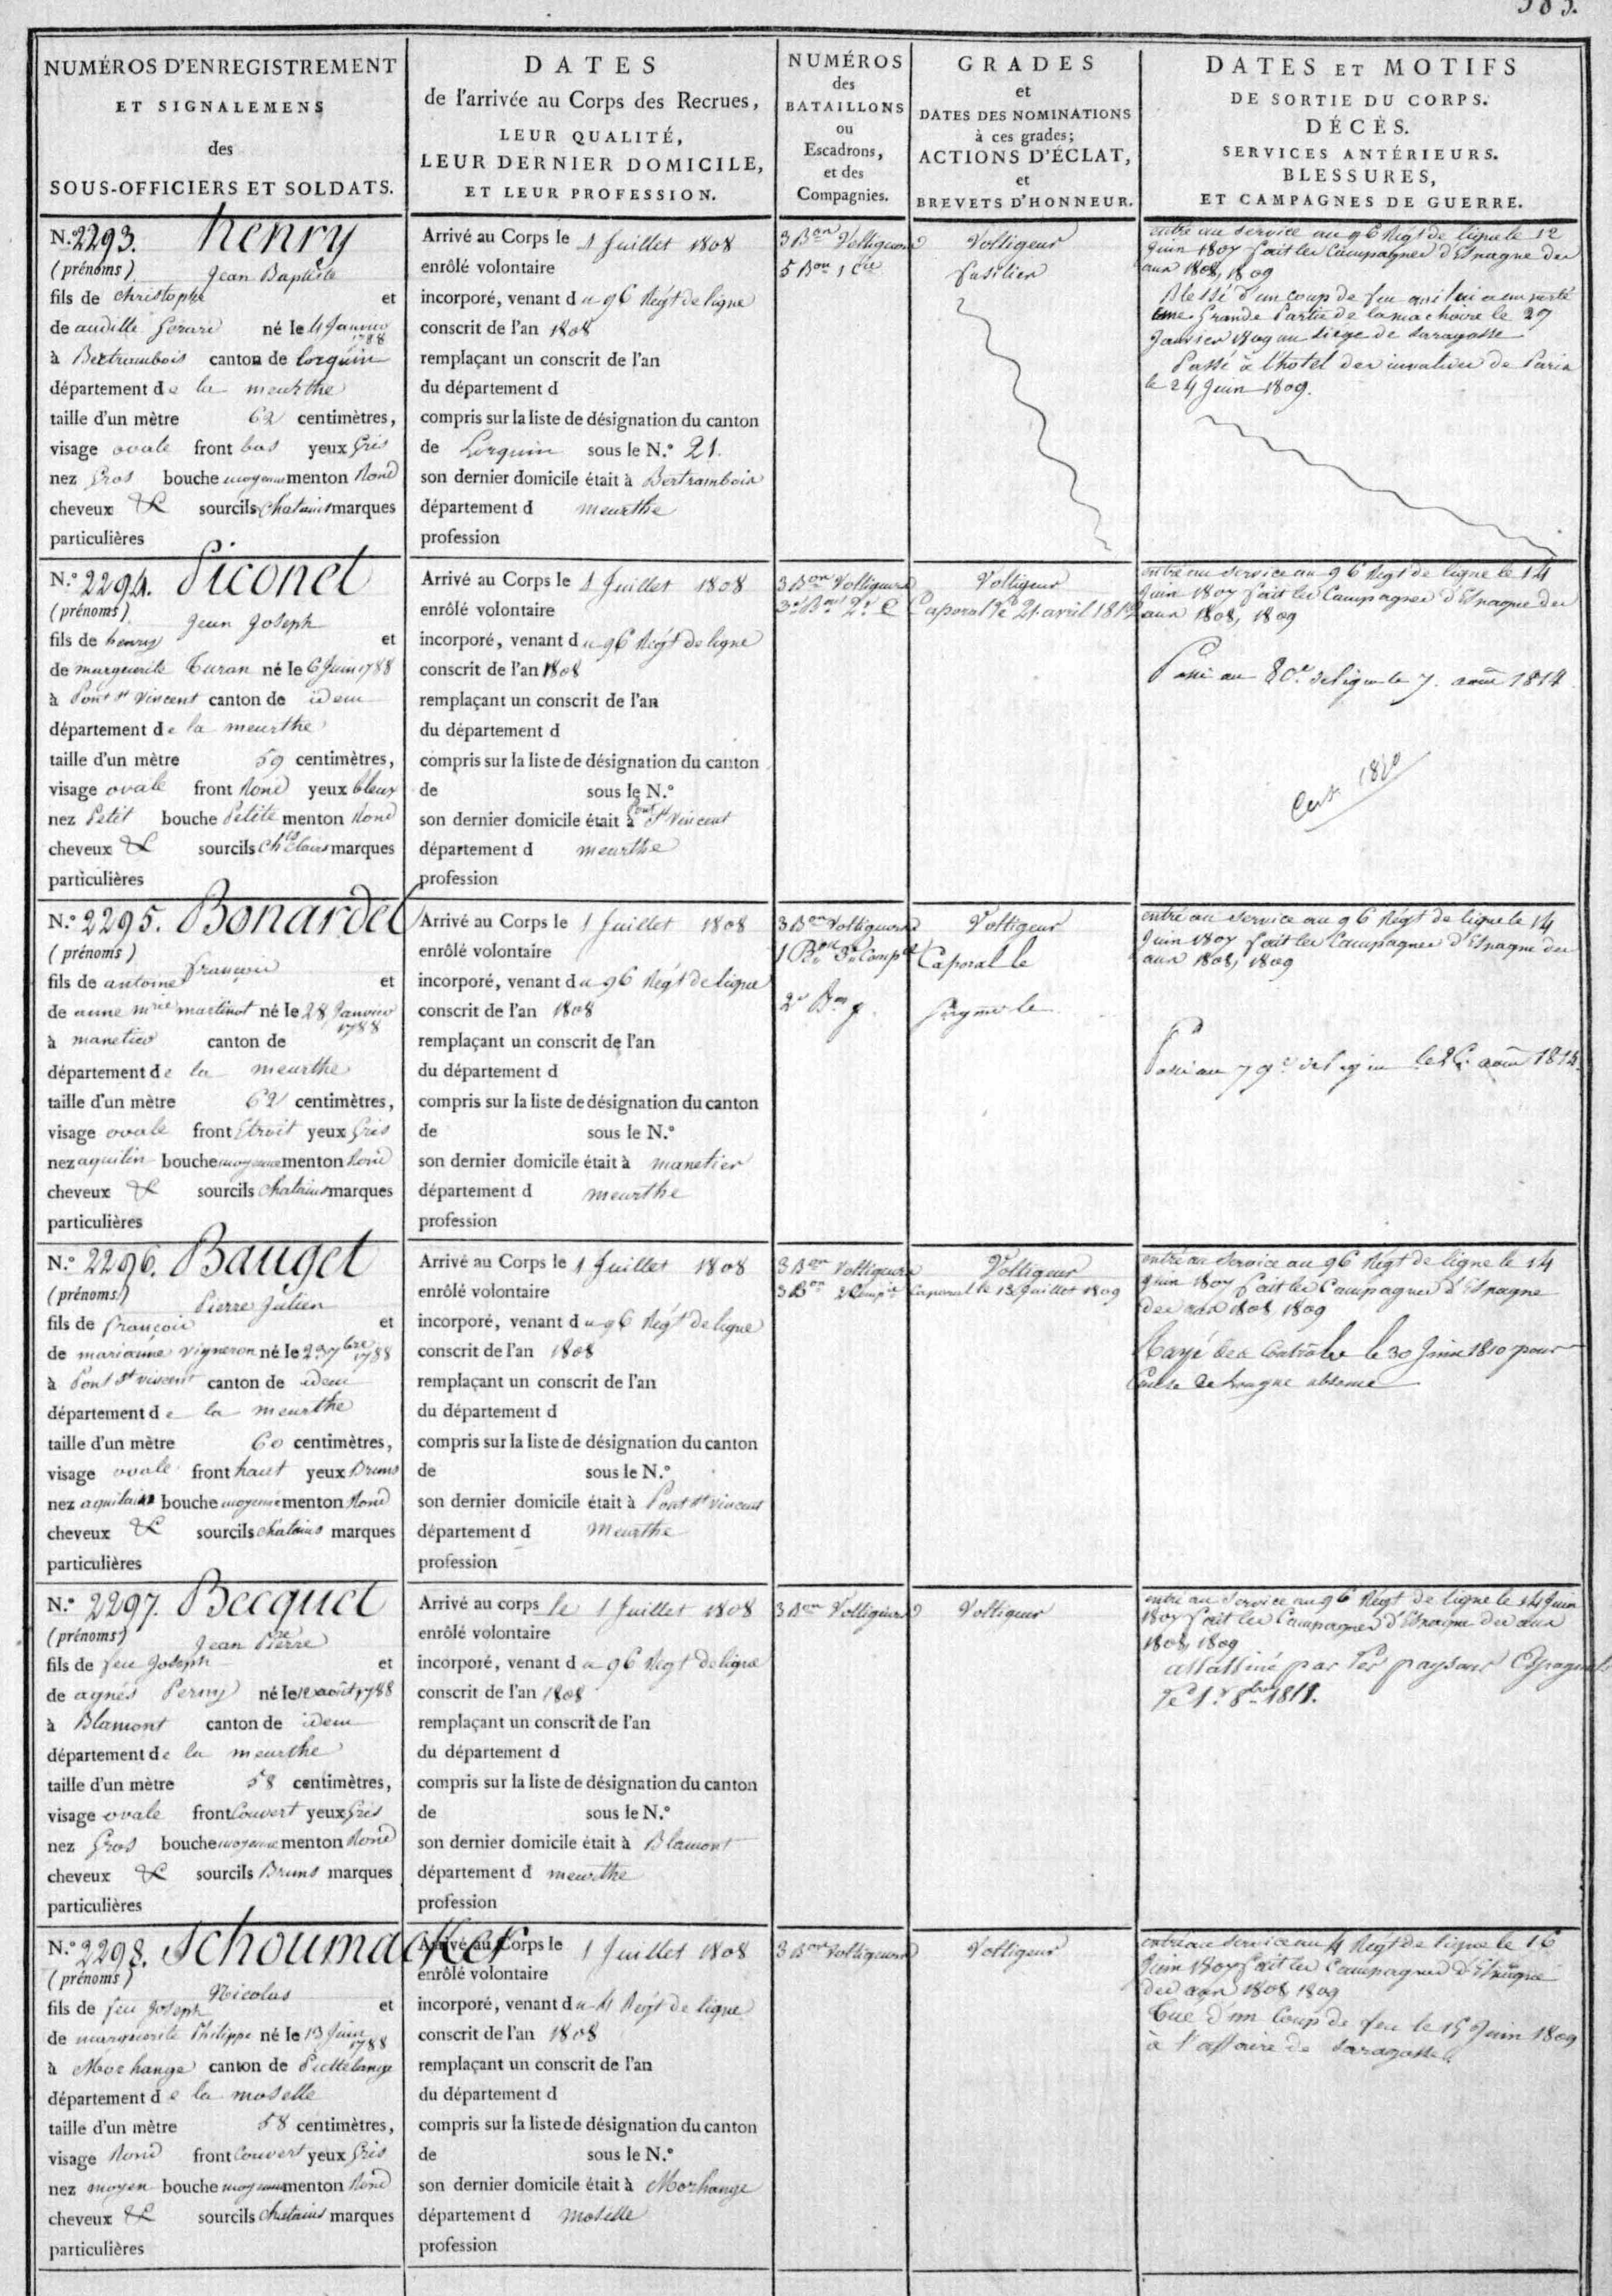 383.
NUMÉROS D'ENREGISTREMENT
ET SIGNALEMENS
des
SOUS-OFFICIERS ET SOLDATS.
DATES
de l'arrivée au Corps des Recrues,
LEUR QUALITÉ,
LEUR DERNIER DOMICILE,
ET LEUR PROFESSION.
NUMÉROS
des
BATAILLONS
ou
Escadrons,
et des
Compagnies.
GRADES
et
DATES DES NOMINATIONS
à ces grades;
ACTIONS D'ÉCLAT,
et
BREVETS D'HONNEUR.
DATES ET MOTIFS
DE SORTIE DU CORPS.
DÉCÈS.
SERVICES ANTÉRIEURS.
BLESSURES,
ET CAMPAGNES DE GUERRE.
N.º 2293. henry
(prénoms) Jean Baptiste
fils de christophe et
de audille Gerard né le 4 Janvier 1788
à Bertrambois canton de lorquin
département de la meurthe
taille d'un mètre 62 centimètres,
visage ovale front bas yeux Gris
nez Gros bouche moyenne menton Rond
cheveux & sourcils chatains marques
particulières
Arrivé au Corps le 1 Juillet 1808
enrôlé volontaire
incorporé, venant du 96 Régt de ligne
conscrit de l'an 1808
remplaçant un conscrit de l'an
du département d
compris sur la liste de désignation du canton
de Lorquin sous le N.º 21.
son dernier domicile était à Bertrambois
département d meurthe
profession
3 Bon Voltigeurs
5 Bon 1 Cie
Voltigeur
fusilier
entré au service au 96 Régt de ligne le 12
Juin 1807 fait les Campagnes d'Espagne des
ans 1808, 1809
Blessé d'un coup de feu qui lui a emporté
une Grande Partie de la machoire le 27
Janvier 1809 au siege de saragosse
Passé à l'hotel des invalides de Paris
le 24 Juin 1809.
N.º 2294. Piconet
(prénoms) Jean Joseph
fils de henry et
de marguerite Turan né le 6 Juin 1788
à Pont st Vincent canton de idem
département de la meurthe
taille d'un mètre 59 centimètres,
visage ovale front Rond yeux bleux
nez Petit bouche Petite menton Rond
cheveux & sourcils chts clairs marques
particulières
Arrivé au Corps le 1 Juillet 1808
enrôlé volontaire
incorporé, venant du 96 Régt de ligne
conscrit de l'an 1808
remplaçant un conscrit de l'an
du département d
compris sur la liste de désignation du canton
de sous le N.º
son dernier domicile était à Pont st Vincent
département d meurthe
profession
3 Bon Voltigeurs
3e Bon 2e C
Voltigeur
Caporal le 21 avril 1812
entré au service au 96 Régt de ligne le 14
Juin 1807 fait les Campagnes d'Espagne des
ans 1808, 1809
Passé au 80e de ligne le 7. août 1814
1810
N.º 2295. Bonardel
(prénoms) françois
fils de antoine et
de anne mrie martinot né le 28 Janvier 1788
à manetier canton de
département de la meurthe
taille d'un mètre 62 centimètres,
visage ovale front Etroit yeux Gris
nez aquilin bouche moyenne menton Rond
cheveux & sourcils chatains marques
particulières
Arrivé au Corps le 1 Juillet 1808
enrôlé volontaire
incorporé, venant du 96 Régt de ligne
conscrit de l'an 1808
remplaçant un conscrit de l'an
du département d
compris sur la liste de désignation du canton
de sous le N.º
son dernier domicile était à manetier
département d meurthe
profession
3 Bon Voltigeurs
1 Bon 3e Compie
2e Bon
Voltigeur
Caporal le
entré au service au 96 Régt de ligne le 14
Juin 1807 fait les Campagnes d'Espagne des
ans 1808, 1809
Passé au 79e de ligne le 26 août 1814.
N.º 2296. Bauget
(prénoms) Pierre Julien
fils de françois et
de marianne vigneron né le 23 7bre 1788
à Pont st vincent canton de idem
département de la meurthe
taille d'un mètre 60 centimètres,
visage ovale front haut yeux Bruns
nez aquilain bouche moyenne menton Rond
cheveux & sourcils chatains marques
particulières
Arrivé au Corps le 1 Juillet 1808
enrôlé volontaire
incorporé, venant du 96 Régt de ligne
conscrit de l'an 1808
remplaçant un conscrit de l'an
du département d
compris sur la liste de désignation du canton
de sous le N.º
son dernier domicile était à Pont st Vincent
département d Meurthe
profession
3 Bon Voltigeurs
3 Bon 2 Compie
Voltigeur
Caporal le 13 Juillet 1809
entré au service au 96 Régt de ligne le 14
Juin 1807 fait les Campagnes d'Espagne
des ans 1808 1809
Rayé des Contrôles le 30 Juin 1810 pour
Cause de Longue absence
N.º 2297. Becquet
(prénoms) Jean Pierre
fils de feu Joseph et
de agnés Perny né le 12 août 1788
à Blamont canton de idem
département de la meurthe
taille d'un mètre 58 centimètres,
visage ovale front Couvert yeux Gris
nez Gros bouche moyenne menton Rond
cheveux & sourcils Bruns marques
particulières
Arrivé au corps le 1 Juillet 1808
enrôlé volontaire
incorporé, venant du 96 Régt de ligne
conscrit de l'an 1808
remplaçant un conscrit de l'an
du département d
compris sur la liste de désignation du canton
de sous le N.º
son dernier domicile était à Blamont
département d meurthe
profession
3 Bon Voltigeurs
Voltigeur
entré au service au 96 Régt de ligne le 14 Juin
1807 fait les Campagnes d'Espagne des ans
1808, 1809
assassiné par les paysans Espagnols
le 1er 8bre 1811.
N.º 2298. Schoumacker
(prénoms) Nicolas
fils de feu Joseph et
de marguerite Philippe né le 13 Juin 1788
à Morhange canton de Puttelange
département de la moselle
taille d'un mètre 58 centimètres,
visage Rond front Couvert yeux Gris
nez moyen bouche moyenne menton Rond
cheveux & sourcils chatains marques
particulières
Arrivé au Corps le 1 Juillet 1808
enrôlé volontaire
incorporé, venant du 4 Régt de ligne
conscrit de l'an 1808
remplaçant un conscrit de l'an
du département d
compris sur la liste de désignation du canton
de sous le N.º
son dernier domicile était à Morhange
département d moselle
profession
3 Bon Voltigeurs
Voltigeur
entré au service au 4 Régt de ligne le 16
Juin 1807 fait les Campagnes d'Espagne
des ans 1808, 1809
Tué d'un Coup de feu le 15 Juin 1809
à l'affaire de saragosse.